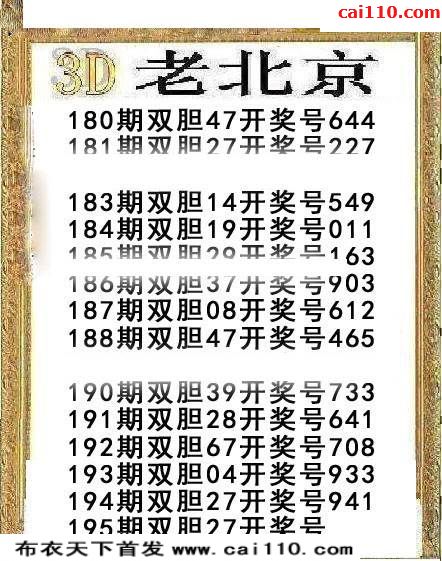 cai110.com
3D 老北京
180期双胆47开奖号644
181期双胆27开奖号227
183期双胆14开奖号549
184期双胆19开奖号011
185期双胆29开奖号163
186期双胆37开奖号903
187期双胆08开奖号612
188期双胆47开奖号465
190期双胆39开奖号733
191期双胆28开奖号641
192期双胆67开奖号708
193期双胆04开奖号933
194期双胆27开奖号941
195期双胆27开奖号
布衣天下首发 www.cai110.com